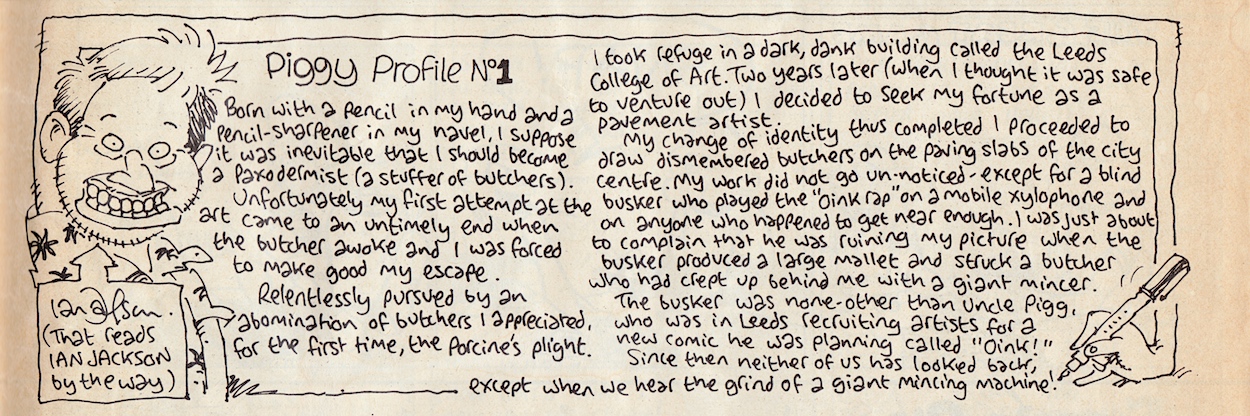 Piggy Profile Nº1
Born with a pencil in my hand and a
pencil-sharpener in my navel, I suppose
it was inevitable that I should become
a Paxodermist (a stuffer of butchers).
Unfortunately my first attempt at the
art came to an untimely end when
the butcher awoke and I was forced
to make good my escape.
Relentlessly pursued by an
abomination of butchers I appreciated,
for the first time, the Porcine's plight.
I took refuge in a dark, dank building called the Leeds
College of Art. Two years later (when I thought it was safe
to venture out) I decided to seek my fortune as a
pavement artist.
My change of identity thus completed I proceeded to
draw dismembered butchers on the paving slabs of the city
centre. My work did not go un-noticed - except for a blind
busker who played the "Oink rap" on a mobile xylophone and
on anyone who happened to get near enough. I was just about
to complain that he was ruining my picture when the
busker produced a large mallet and struck a butcher
who had crept up behind me with a giant mincer.
The busker was none-other than Uncle Pigg,
who was in Leeds recruiting artists for a
new comic he was planning called "Oink!"
Since then neither of us has looked back,
except when we hear the grind of a giant mincing machine!
(That reads
IAN JACKSON
by the way)